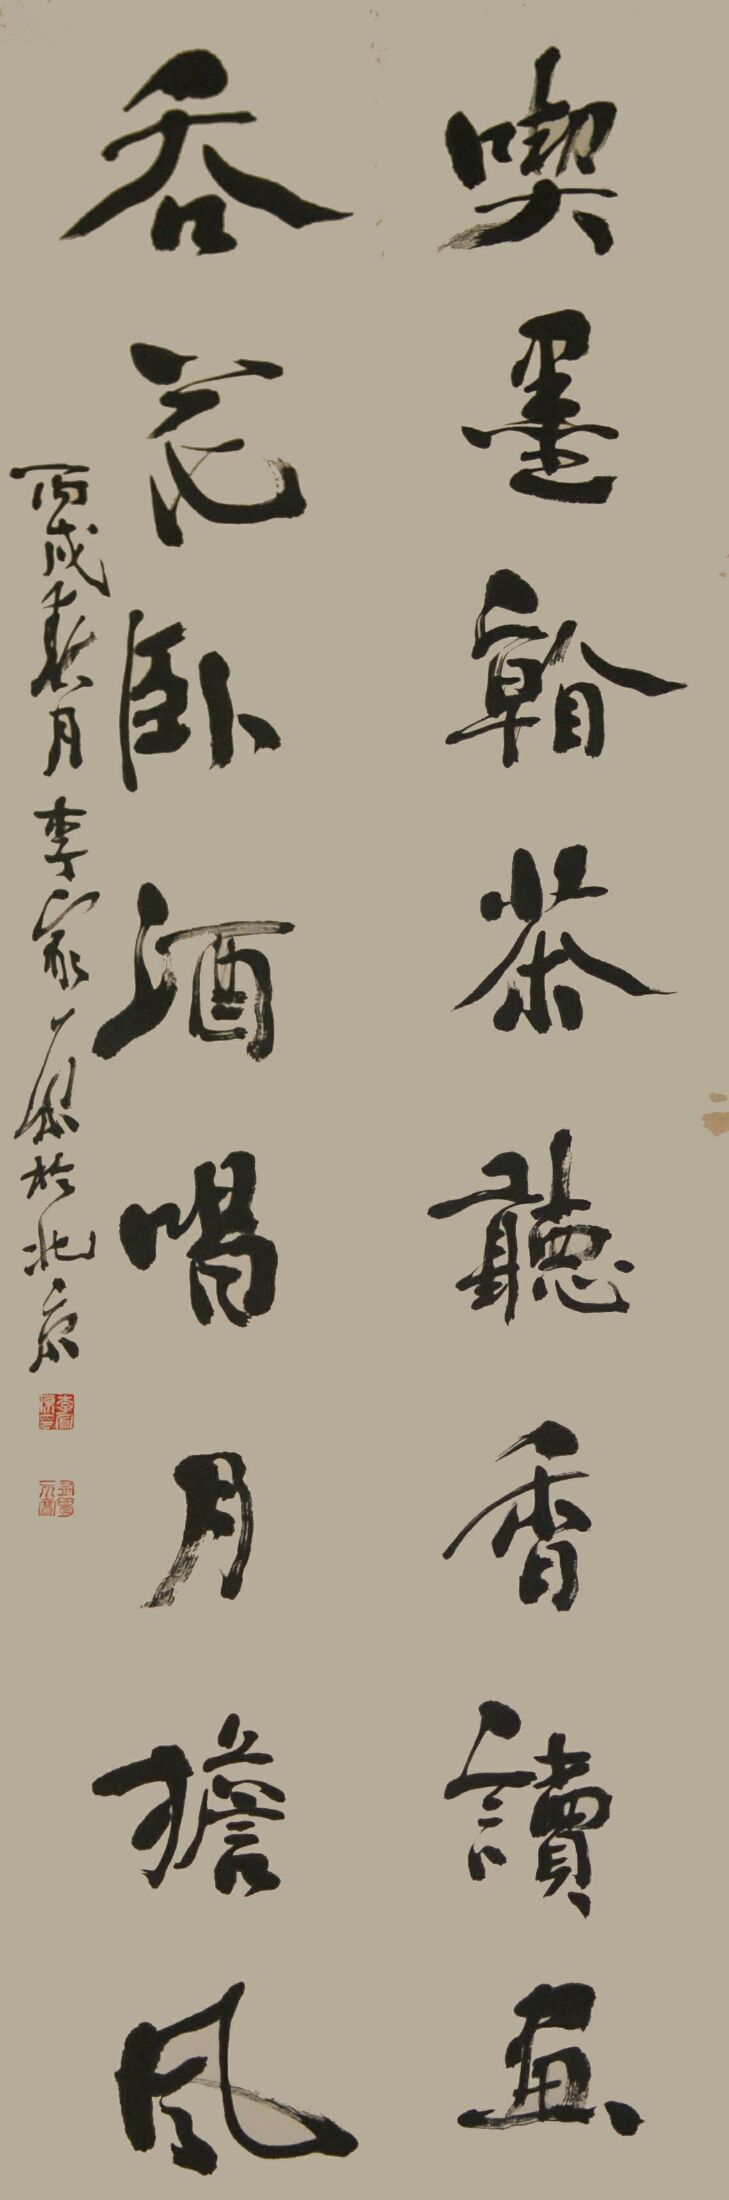 喫墨看茶聽香讀畫
吞花卧酒喝月擔風
丙戌春月李家原於北京